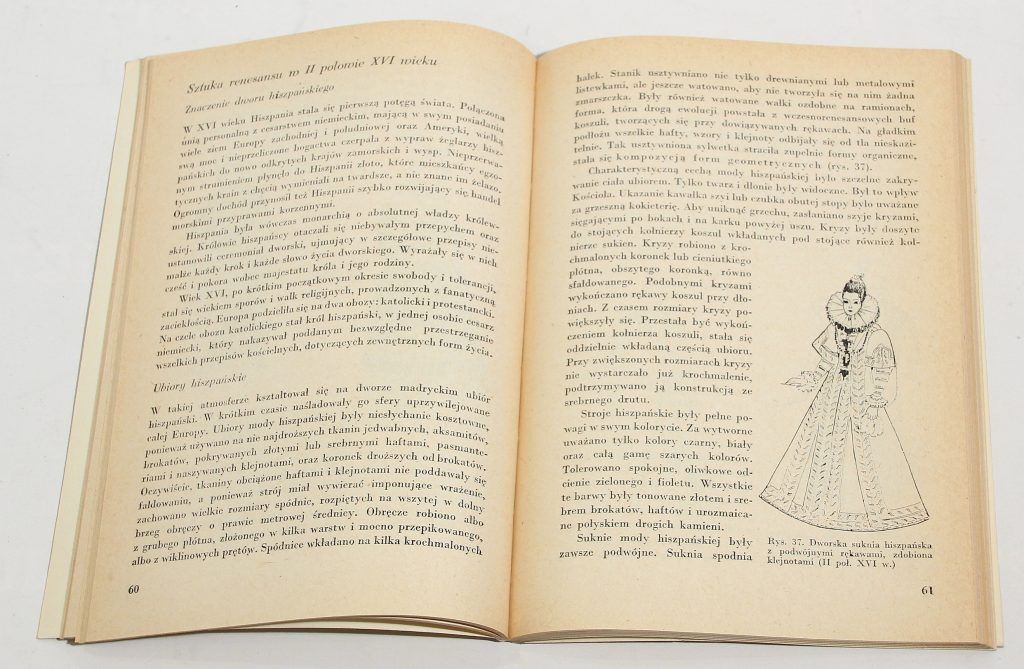 Sztuka renesansu w II połowie XVI wieku
Znaczenie dworu hiszpańskiego
W XVI wieku Hiszpania stała się pierwszą potęgą świata. Połączona
unią personalną z cesarstwem niemieckim, mającą w swym posiadaniu
wiele ziem Europy zachodniej i południowej oraz Ameryki, wielką
swą moc i nieprzeliczone bogactwa czerpała z wypraw żeglarzy hisz-
pańskich do nowo odkrytych krajów zamorskich i wysp. Nieprzerwa-
nym strumieniem płynęło do Hiszpanii złoto, które mieszkańcy egzo-
tycznych krain z chęcią wymieniali na twardsze, a nie znane im żelazo.
Ogromny dochód przynosił też Hiszpanii szybko rozwijający się handel
morskimi przyprawami korzennymi.
Hiszpania była wówczas monarchią o absolutnej władzy królew-
skiej. Królowie hiszpańscy otaczali się niebywałym przepychem oraz
ustanowili ceremoniał dworski, ujmujący w szczegółowe przepisy nie-
malże każdy krok i każde słowo życia dworskiego. Wyrażały się w nich
cześć i pokora wobec majestatu króla i jego rodziny.
Wiek XVI, po krótkim początkowym okresie swobody i tolerancji,
stał się wiekiem sporów i walk religijnych, prowadzonych z fanatyczną
zaciekłością. Europa podzieliła się na dwa obozy: katolicki i protestancki.
Na czele obozu katolickiego stał król hiszpański, w jednej osobie cesarz
niemiecki, który nakazywał poddanym bezwzględne przestrzeganie
wszelkich przepisów kościelnych, dotyczących zewnętrznych form życia.
Ubiory hiszpańskie
W takiej atmosferze kształtował się na dworze madryckim ubiór
hiszpański. W krótkim czasie naśladowały go sfery uprzywilejowane
całej Europy. Ubiory mody hiszpańskiej były niesłychanie kosztowne,
ponieważ używano na nie najdroższych tkanin jedwabnych, aksamitów,
brokatów, pokrywanych złotymi lub srebrnymi haftami, pasmante-
riami i naszywanych klejnotami, oraz koronek droższych od brokatów.
Oczywiście, tkaniny obciążone haftami i klejnotami nie poddawały się
fałdowaniu, a ponieważ strój miał wywierać imponujące wrażenie,
zachowano wielkie rozmiary spódnic, rozpiętych na wszytej w dolny
brzeg obręczy o prawie metrowej średnicy. Obręcze robiono albo
z grubego płótna, złożonego w kilka warstw i mocno przepikowanego,
albo z wiklinowych prętów. Spódnice wkładano na kilka krochmalonych
60
halek. Stanik usztywniano nie tylko drewnianymi lub metalowymi
listewkami, ale jeszcze watowano, aby nie tworzyła się na nim żadna
zmarszczka. Były również watowane wałki ozdobne na ramionach,
forma, która drogą ewolucji powstała z wczesnorenesansowych buf
koszuli, tworzących się przy dowiązywanych rękawach. Na gładkim
podłożu wszelkie hafty, wzory i klejnoty odbijały się od tła nieskazi-
telnie. Tak usztywniona sylwetka straciła zupełnie formy organiczne,
stała się kompozycją form geometrycznych (rys. 37).
Charakterystyczną cechą mody hiszpańskiej było szczelne zakry-
wanie ciała ubiorem. Tylko twarz i dłonie były widoczne. Był to wpływ
Kościoła. Ukazanie kawałka szyi lub czubka obutej stopy było uważane
za grzeszną kokieterię. Aby uniknąć grzechu, zasłaniano szyje kryzami,
sięgającymi po bokach i na karku powyżej uszu. Kryzy były doszyte
do stojących kołnierzy koszul wkładanych pod stojące również koł-
nierze sukien. Kryzy robiono z kro-
chmalonych koronek lub cieniutkiego
płótna, obszytego koronką, równo
sfałdowanego. Podobnymi kryzami
wykończano rękawy koszul przy dło-
niach. Z czasem rozmiary kryzy po-
większyły się. Przestała być wykoń-
czeniem kołnierza koszuli, stała się
oddzielnie wkładaną częścią ubioru.
Przy zwiększonych rozmiarach kryzy
nie wystarczało już krochmalenie,
podtrzymywano ją konstrukcją ze
srebrnego drutu.
Stroje hiszpańskie były pełne po-
wagi w swym kolorycie. Za wytworne
uważano tylko kolory czarny, biały
oraz całą gamę szarych kolorów.
Tolerowano spokojne, oliwkowe od-
cienie zielonego i fioletu. Wszystkie
te barwy były tonowane złotem i sre-
brem brokatów, haftów i urozmaica-
ne połyskiem drogich kamieni.
Suknie mody hiszpańskiej były
zawsze podwójne. Suknia spodnia
Rys. 37. Dworska suknia hiszpańska
z podwójnymi rękawami, zdobiona
klejnotami (II poł. XVI w.)
61